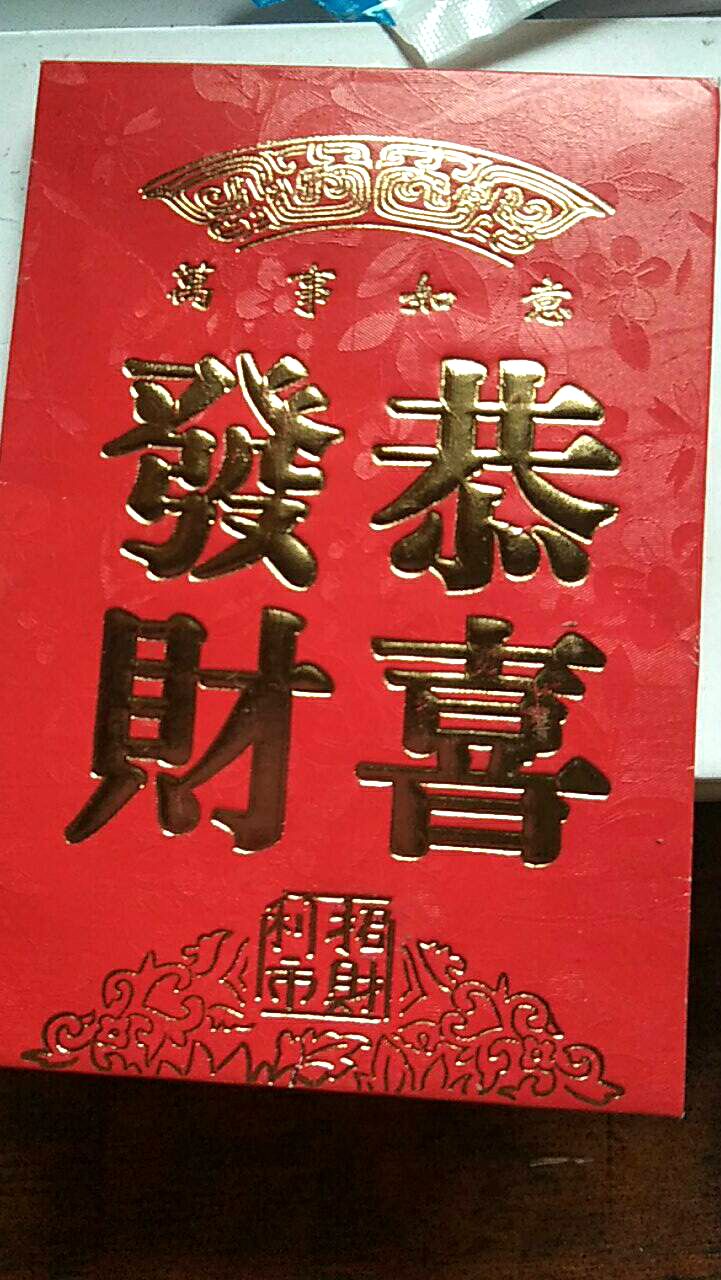 萬事如意
恭喜
發財
招財
利市